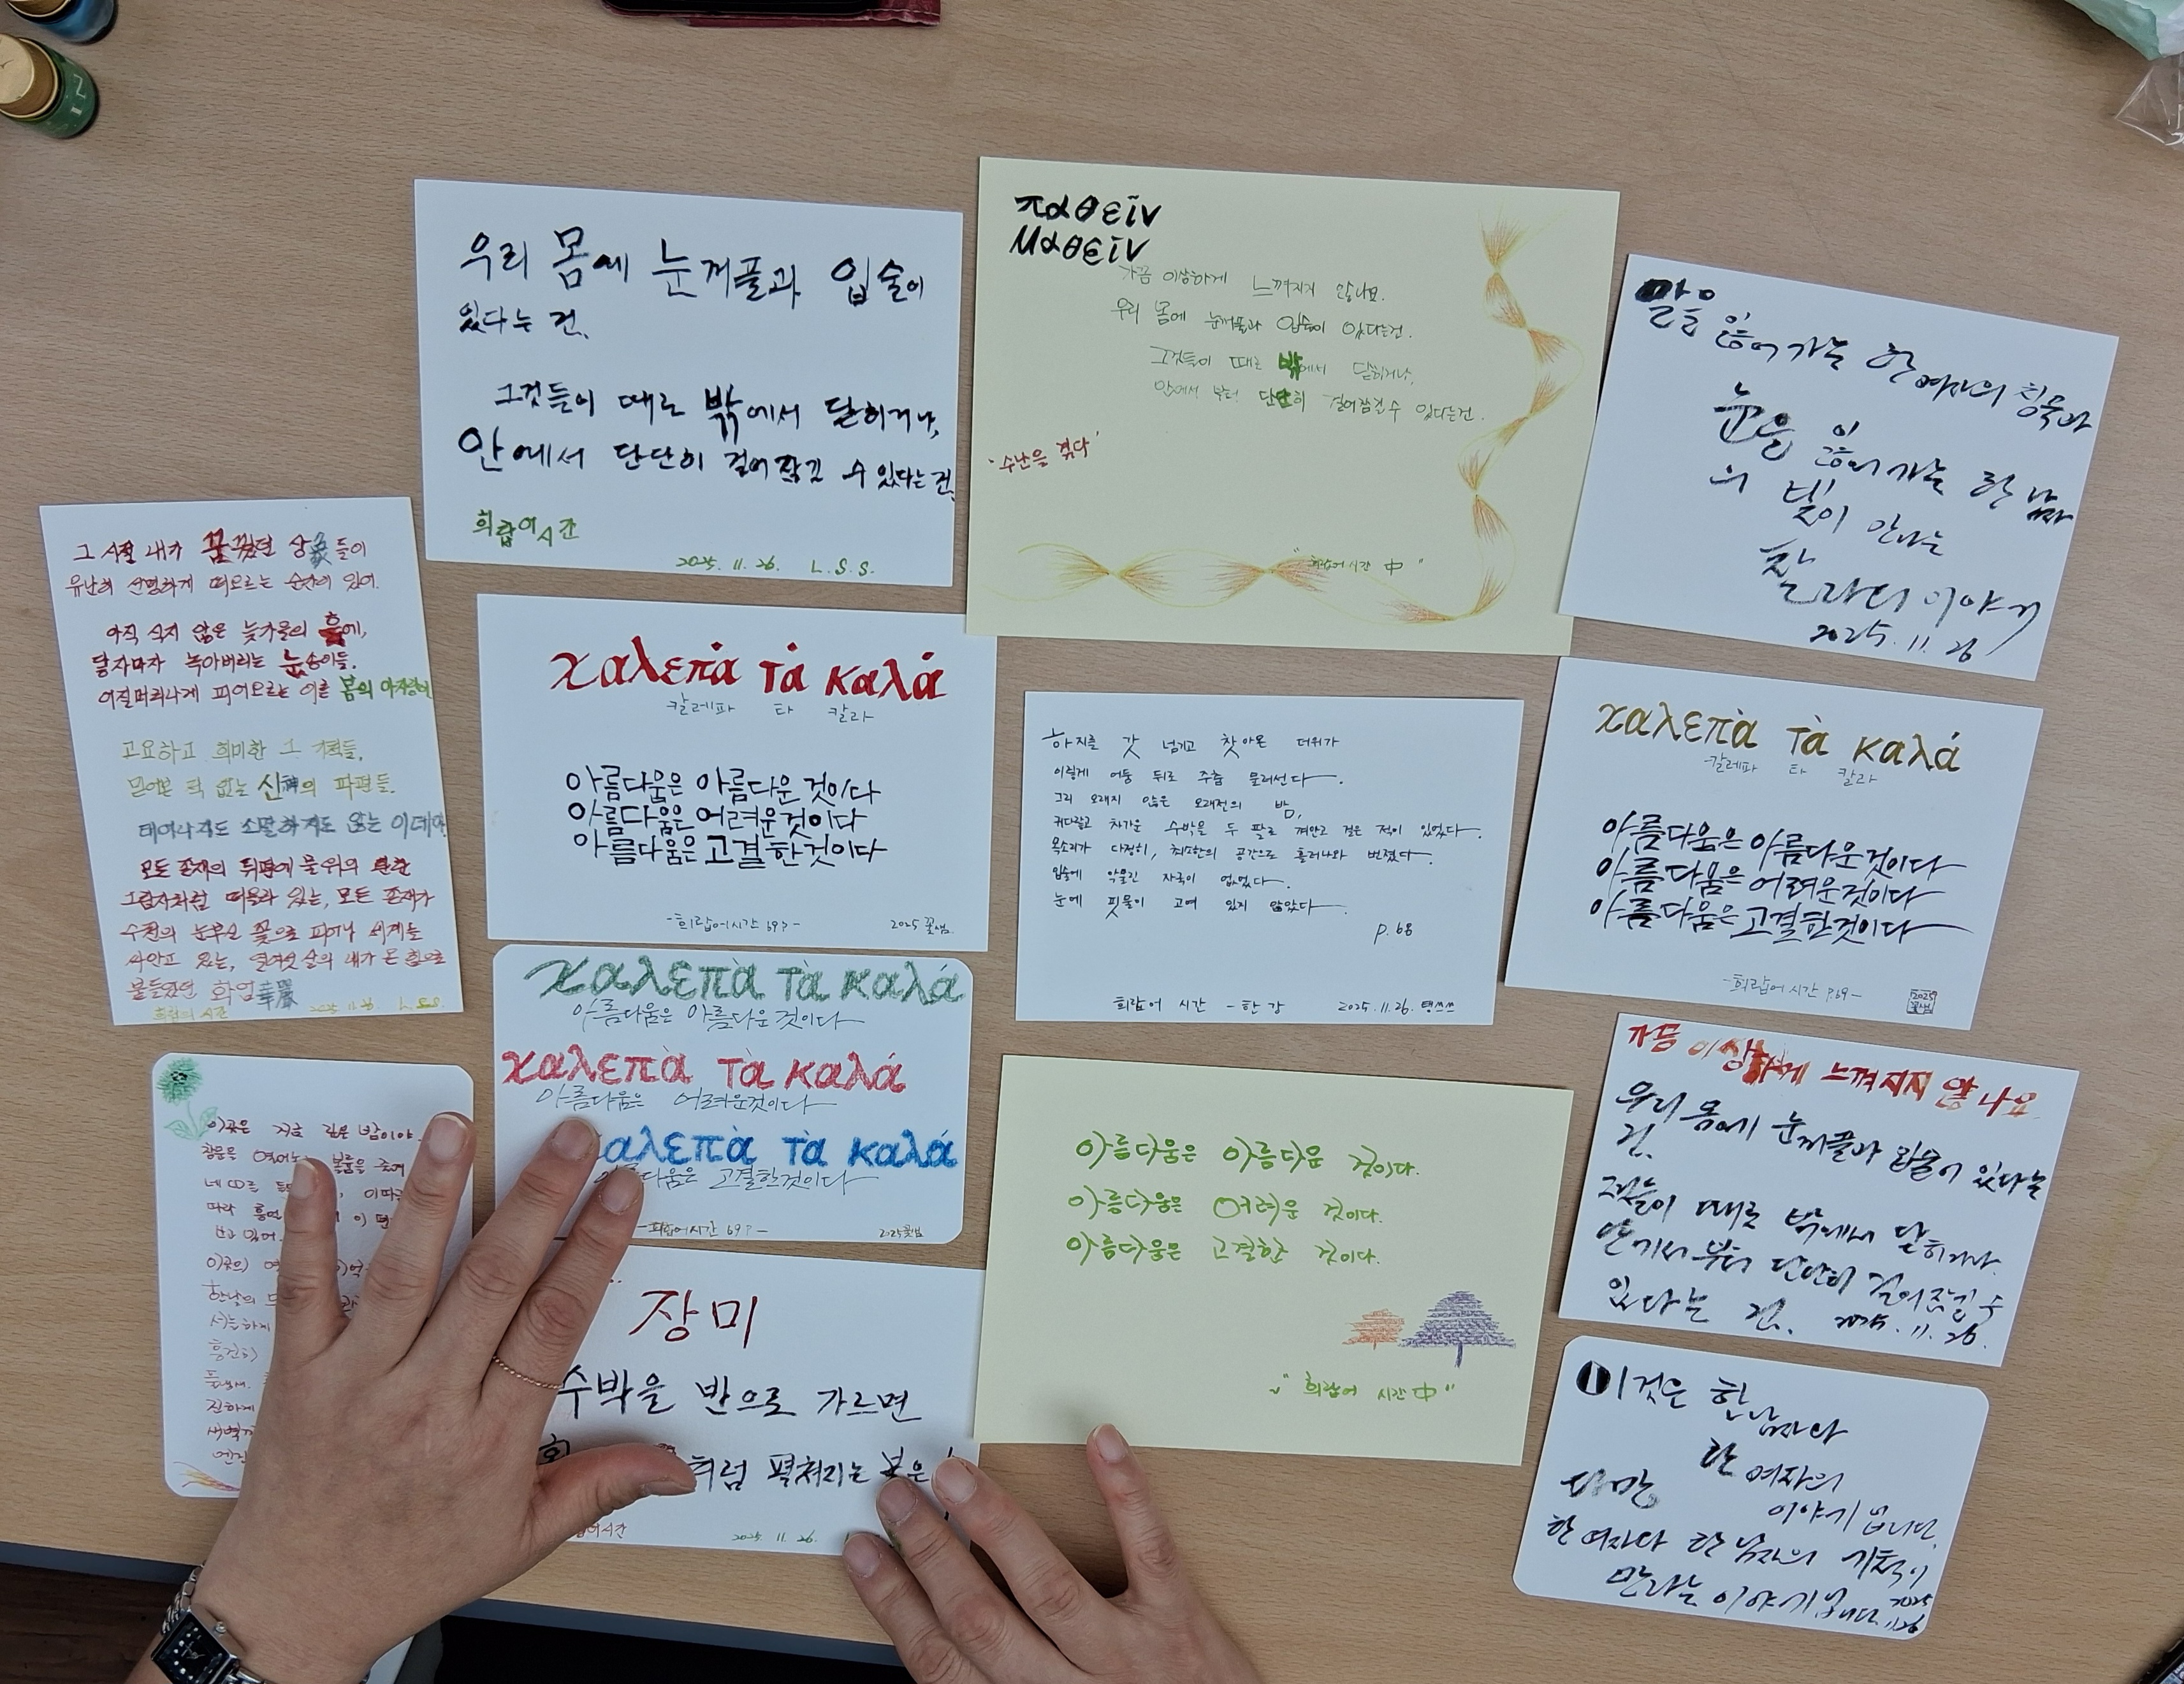 우리 몸에 눈꺼풀과 입술이
있다는 건.
그것들이 때로 밖에서 닫히거나,
안에서 단단히 걸어 잠길 수 있다는 건.
희랍어시간
2025. 11. 26. L.S.S.
παθεῖν
μαθεῖν
가끔 이상하게 느껴지지 않나요.
우리 몸에 눈꺼풀과 입술이 있다는건.
그것들이 때로 밖에서 닫히거나,
안에서 부터 단단히 걸어잠길수 있다는건.
'수난을 겪다'
"희랍어 시간 中"
말을 잃어가는 한 여자의 침묵과
눈을 잃어가는 한 남자
의 빛이 만나는
찰라의 이야기
2025. 11. 26
그 시절 내가 꿈꾸었던 상象들이
유난히 선명하게 떠오르는 순간이 있어.
아직 식지 않은 늦가을의 흙에,
닿자마자 녹아버리는 눈송이들.
어질머리나게 피어오르는 이른 봄의 아지랑이
고요하고 희미한 그 기척들.
믿어본 적 없는 신神의 파편들.
태어나지도 소멸하지도 않는 이데아
모든 존재의 뒤편에 물 위의
그림자처럼 떠올라 있는, 모든 존재가
수천의 눈부신 꽃으로 피어나 세계를
싸안고 있는, 열여섯 살의 내가 온 힘으로
붙들었던 화엄華嚴
희랍어 시간 2025 11. 26. L.S.S.
χαλεπὰ τὰ καλά
칼레파 타 칼라
아름다움은 아름다운 것이다
아름다움은 어려운것이다
아름다움은 고결한것이다
-희랍어시간 69P-
2025 꽃샘.
하지를 갓 넘기고 찾아온 더위가
이렇게 어둠 뒤로 주춤 물러선다.
그리 오래지 않은 오래전의 밤,
커다랗고 차가운 수박을 두 팔로 껴안고 걸은 적이 있었다.
목소리가 다정히, 최소한의 공간으로 흘러나와 번졌다.
입술에 악물린 자국이 없었다.
눈에 핏물이 고여 있지 않았다.
P. 68
희랍어 시간 - 한강 2025. 11. 26.
χαλεπὰ τὰ καλά
칼레파 타 칼라
아름다움은 아름다운것이다
아름다움은 어려운것이다
아름다움은 고결한것이다
-희랍어시간 P.69-
2025
꽃샘
χαλεπὰ τὰ καλά
아름다움은 아름다운 것이다
χαλεπὰ τὰ καλά
아름다움은 어려운것이다
αλεπὰ τὰ καλά
다움은 고결한것이다
-희랍어시간 69P-
2025꽃샘
이곳은 지금 깊은 밤이야.
창문을 열어
네 CD를
있어.
이곳의
진하게
장미
수박을 반으로 가르면
처럼 펼쳐지는 붉은
어시간
2025. 11. 26.
아름다움은 아름다운 것이다.
아름다움은 어려운 것이다.
아름다움은 고결한 것이다.
" 희랍어 시간 中 "
가끔 이상하게 느껴지지 않나요
우리 몸에 눈꺼풀과 입술이 있다는
건.
그것들이 때로 밖에서 닫히거나.
안에서 부터 단단히 걸어잠길 수
있다는 건. 2025. 11. 26
이것은 한 남자와
한 여자의
이야기 입니다.
다만
한 여자와 한 남자의 기척이
만나는 이야기 입니다. 2025
11.26